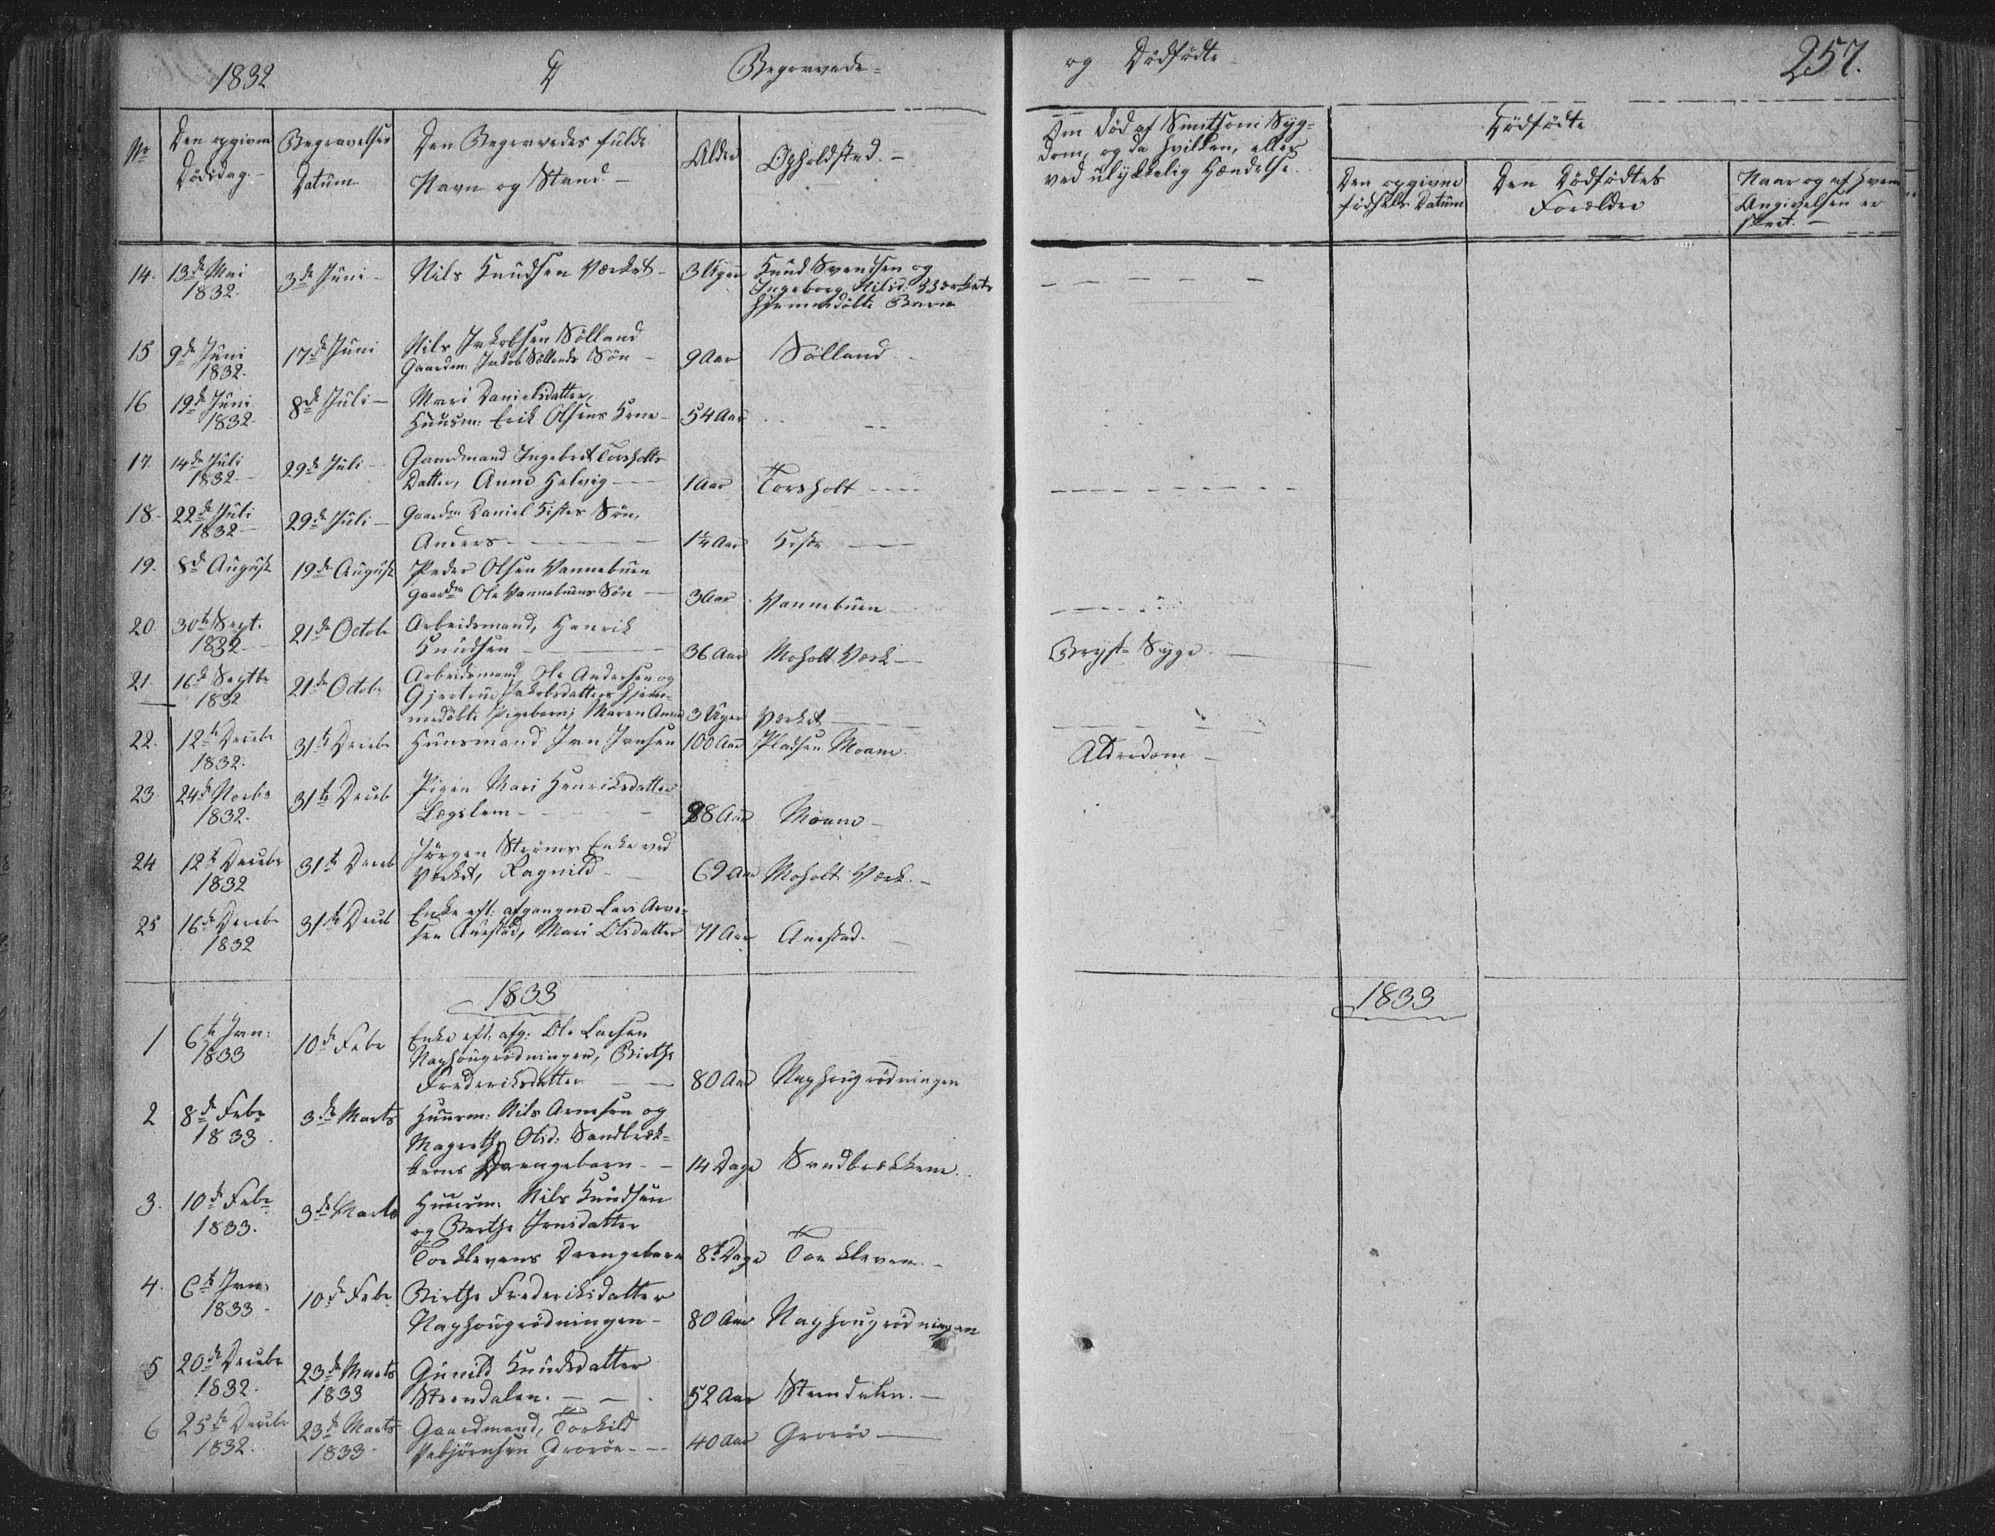 1832
Begravede
og Dødfødte
257.
No
Den opgivne Dødsdag.
Begravelses Datum
Den Begravedes fulde Navn og Stand
Alder
Opholdsted.
Om død af Smitsom Sygdom, og da hvilken, eller ved ulykkelig Hændelse.
Dødfødte
Den opgivne fødsels Datum
Den Dødfødtes Forældre
Naar og af hvem Angivelsen er skeet.
14. 13de Mai 1832. 3de Juni Nils Knudsen Værket 3 Uger Knud Svendsen og Ingeborg Nilsd: Værkets hjemmedøbte Barn
15 9de Juni 1832. 17de Juni Nils Jakobsen Sølland Gaardm: Jakob Søllands Søn 9 Aar Sølland
16 19de Juni 1832. 8de Juli Mari Danielsdatter, Huusm: Erik Olsens Kone 54 Aar
17. 14de Juli 1832. 29de Juli Gaardmand Ingebret Torsholts Datter, Anne Helvig 1 Aar Torsholt
18. 22de Juli 1832 29de Juli Gaardm Daniel Kistes Søn, Anders Kiste
19. 8de August 19de August Peder Olsen Vannebuen Gaardm Ole Vannebuens Søn 3 Aar Vannebuen
20. 30te Sept. 1832 21de Octobr Arbeidsmand, Henrik Knudsen 36 Aar Moholt Værk Bryst Syge
21. 16de Septbr 1832 21de Octobr Arbeidsmand Ole Andersen og Gjertrud Jakobsdatters hjemmedøbte Pigebarn, Maren Anne 3 Uger Værket
22. 12te Decebr 1832. 31te Decebr Huusmand Jan Jansen 100 Aar Pladsen Moane Alderdom
23. 24de Novbr 1832. 31te Deceb Pigen Mari Henriksdatter Lægslem 88 Aar Moane
24 12te Decebr 1832 31te Deceb Jörgen Ströms Enke ved Værket, Ragnild 69 Aar Moholt Værk
25 16de Decebr 1832 31te Deceb Enke eft: afgangne Lars sen Mari Olsdatter 71 Aar
1833
1833
1 6te Jan: 1833 10de Febr Enke eft. afg: Ole Larsen Naphougrødningen, Birthe Frederiksdatter 80 Aar Naphougrødningen
2 8de Febr 1833. 3de Marts Huusm: Nils Arnesen og Magrethe Olsd: Sandbækkens Drengebarn 14 Dage Sandbækkene
3. 10de Febr 1833. 3de Marts Huusm: Nils Knudsen og Berthe Jensdatter Torklevens Drengebarn 8te Dage Torkleven
4. 6te Jan: 1833 10de Febr Birthe Frederiksdatter Naphougrødningen 80 Aar Naphougrødningen
5 20de Decebr 1832. 23de Marts 1833 Gunild Knudsdatter Steendalen. 52 Aar Steendalen.
6 25de Decebr 1832. 23de Marts 1833 Gaardmand, Torkild Grorøe 40 Aar Grorøe